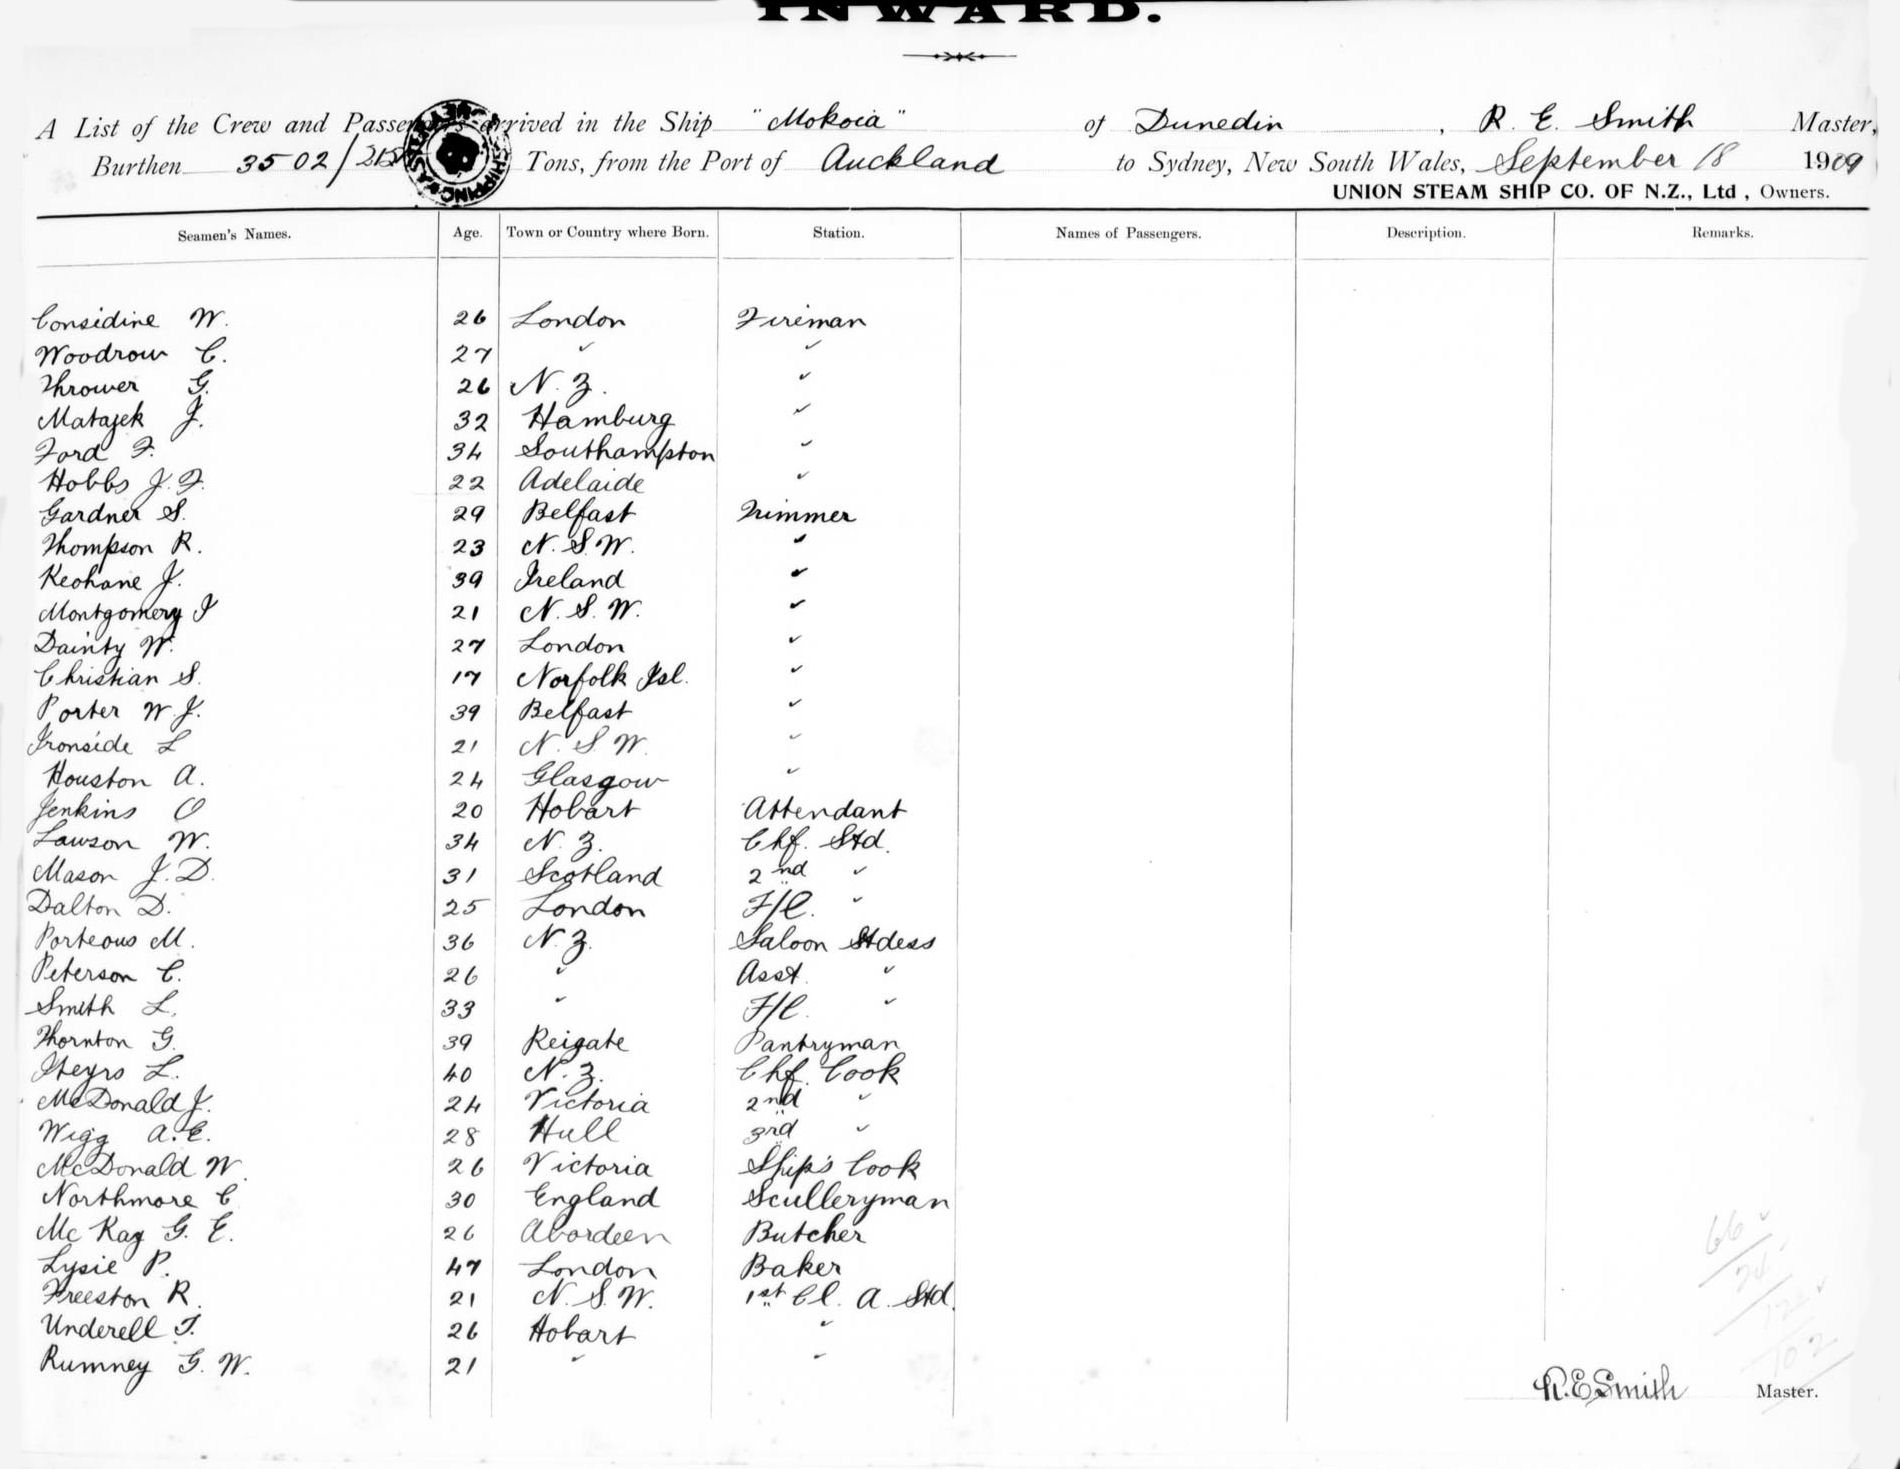 INWARD.
A List of the Crew and Passengers arrived in the Ship "Mokoia" of Dunedin, R. E. Smith Master,
Burthen 3502/ Tons, from the Port of Auckland to Sydney, New South Wales, September 18 1909
UNION STEAM SHIP CO. OF N.Z., Ltd, Owners.
Seamen's Names. Age. Town or Country where Born. Station. Names of Passengers. Description. Remarks.
Considine W. 26 London Fireman
Woodrow C. 27 " "
Thrower G. 26 N. Z. "
Matajek J. 32 Hamburg "
Ford F. 34 Southampton "
Hobbs J. F. 22 Adelaide "
Gardner S. 29 Belfast Trimmer
Thompson R. 23 N. S. W. "
Keohane J. 39 Ireland "
Montgomery J 21 N. S. W. "
Dainty W. 27 London "
Christian S. 17 Norfolk Isl. "
Porter W. J. 39 Belfast "
Ironside L 21 N. S. W. "
Houston A. 24 Glasgow "
Jenkins O 20 Hobart Attendant
Lawson W. 34 N. Z. Chf. Std.
Mason J. D. 31 Scotland 2nd "
Dalton D. 25 London F/C. "
Porteous M. 36 N. Z. Saloon Stdess
Peterson C. 26 " Asst. "
Smith L. 33 " F/C. "
Thornton G. 39 Reigate Pantryman
L. 40 N. Z. Chf. Cook
McDonald J. 24 Victoria 2nd "
Wigg A. E. 28 Hull 3rd "
McDonald W. 26 Victoria Ship's Cook
Northmore C 30 England Sculleryman
Mc Kay G. E. 26 Abordeen Butcher
Lysie P. 47 London Baker
Freeston R. 21 N. S. W. 1st Cl. A. Std.
Underell T. 26 Hobart "
Rumney G. W. 21 " "
66
24
12
102
R. E. Smith Master.